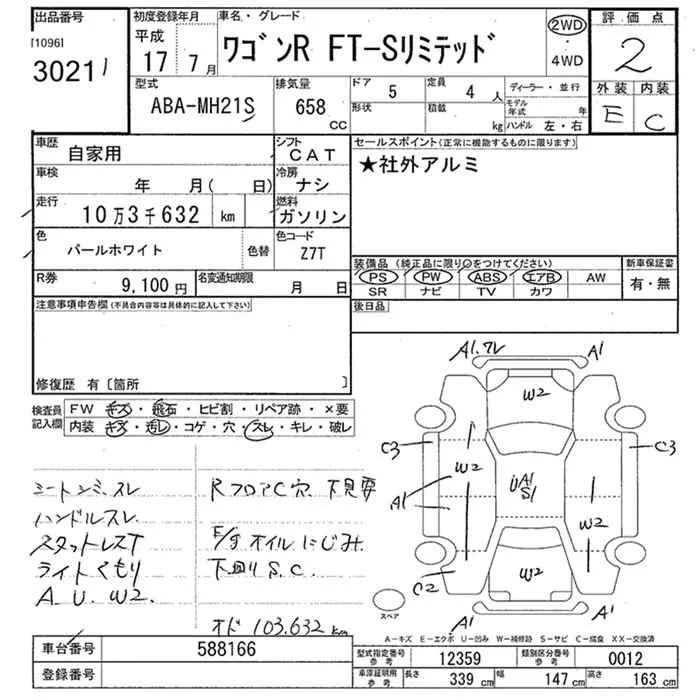 出品番号 初度登録年月 車名・グレード 評価点
[1096]
3021 平成 17年 7月 ワゴンR FT-Sリミテッド 2WD・4WD 2
型式 排気量 ドア 5 定員 4人 ディーラー・並行 外装 内装
ABA-MH21S 658 CC 形状 積載 kg モデル年式 年 ハンドル 左・右 E C
車歴 自家用 シフト CAT セールスポイント(正常に機能するものに限ります)
★社外アルミ
車検 年 月( 日) 冷房 ナシ
走行 10万3千632 km 燃料 ガソリン
色 パールホワイト 色替 色コード Z7T
装備品(純正品に限り○をつけてください) 新車保証書
R券 9,100円 名変通知期限 月 日 PS PW ABS エアB AW 有・無
SR ナビ TV カワ
注意事項申告欄(不具合内容等は具体的に記入して下さい) 後日品
修復歴 有〔箇所 〕
検査員記入欄 FW キズ・飛石・ヒビ割・リペア跡・×要
内装 キズ・汚レ・コゲ・穴・スレ・キレ・破レ
A1.ワレ A1
W2
C3 C3
W2 UA1 S1
A1 W2
C2 W2
A1 A1
スペア
シートシミ.スレ RフロアC穴 下見要
ハンドルスレ
スタットレスT E/g オイルにじみ.
ライトくもり 下廻りS.C.
A.U.W2.
オド 103,632 km
A-キズ E-エクボ U-凹み W-補修跡 S-サビ C-腐食 XX-交換済
車台番号 588166 型式指定番号 参考 12359 類別区分番号 参考 0012
登録番号 車庫証明用 参考 長さ 339 cm 幅 147 cm 高さ 163 cm